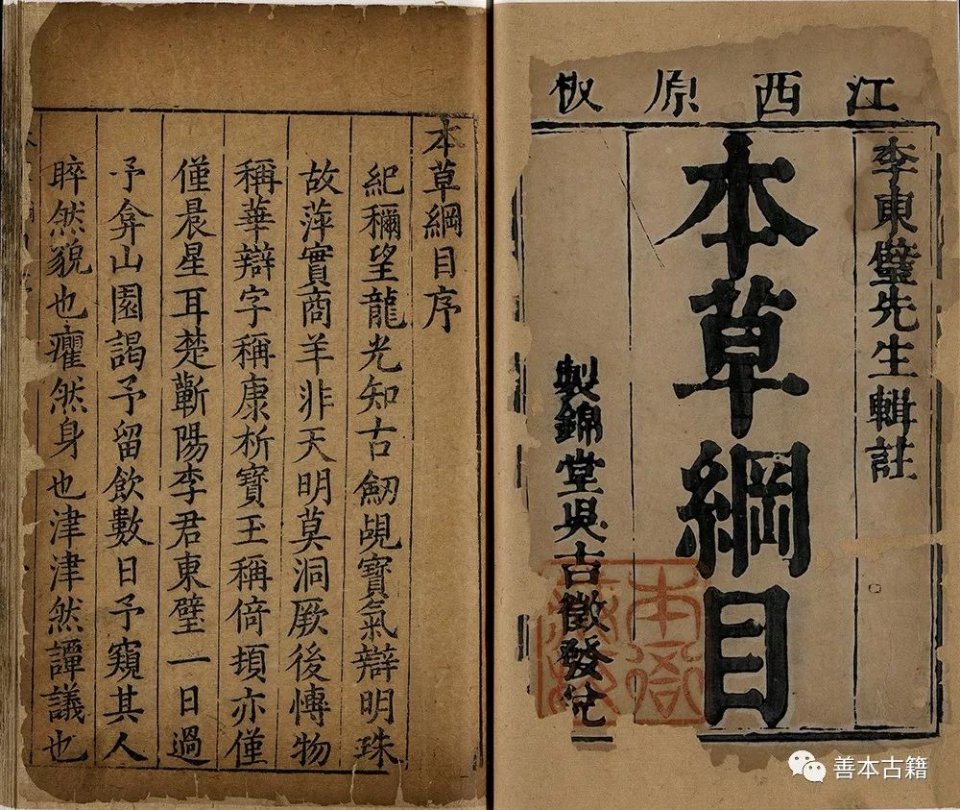 江西原板
李東璧先生輯註
本草綱目
製錦堂吳古徵發兌
本草綱目序
紀稱望龍光知古劒覘寶氣辯明珠
故萍實商羊非天明莫洞厥後博物
稱華辯字稱康析寶玉稱倚頓亦僅
僅晨星耳楚蘄陽李君東璧一日過
予弇山園謁予留飲數日予窺其人
睟然貌也癯然身也津津然譚議也
善本古籍